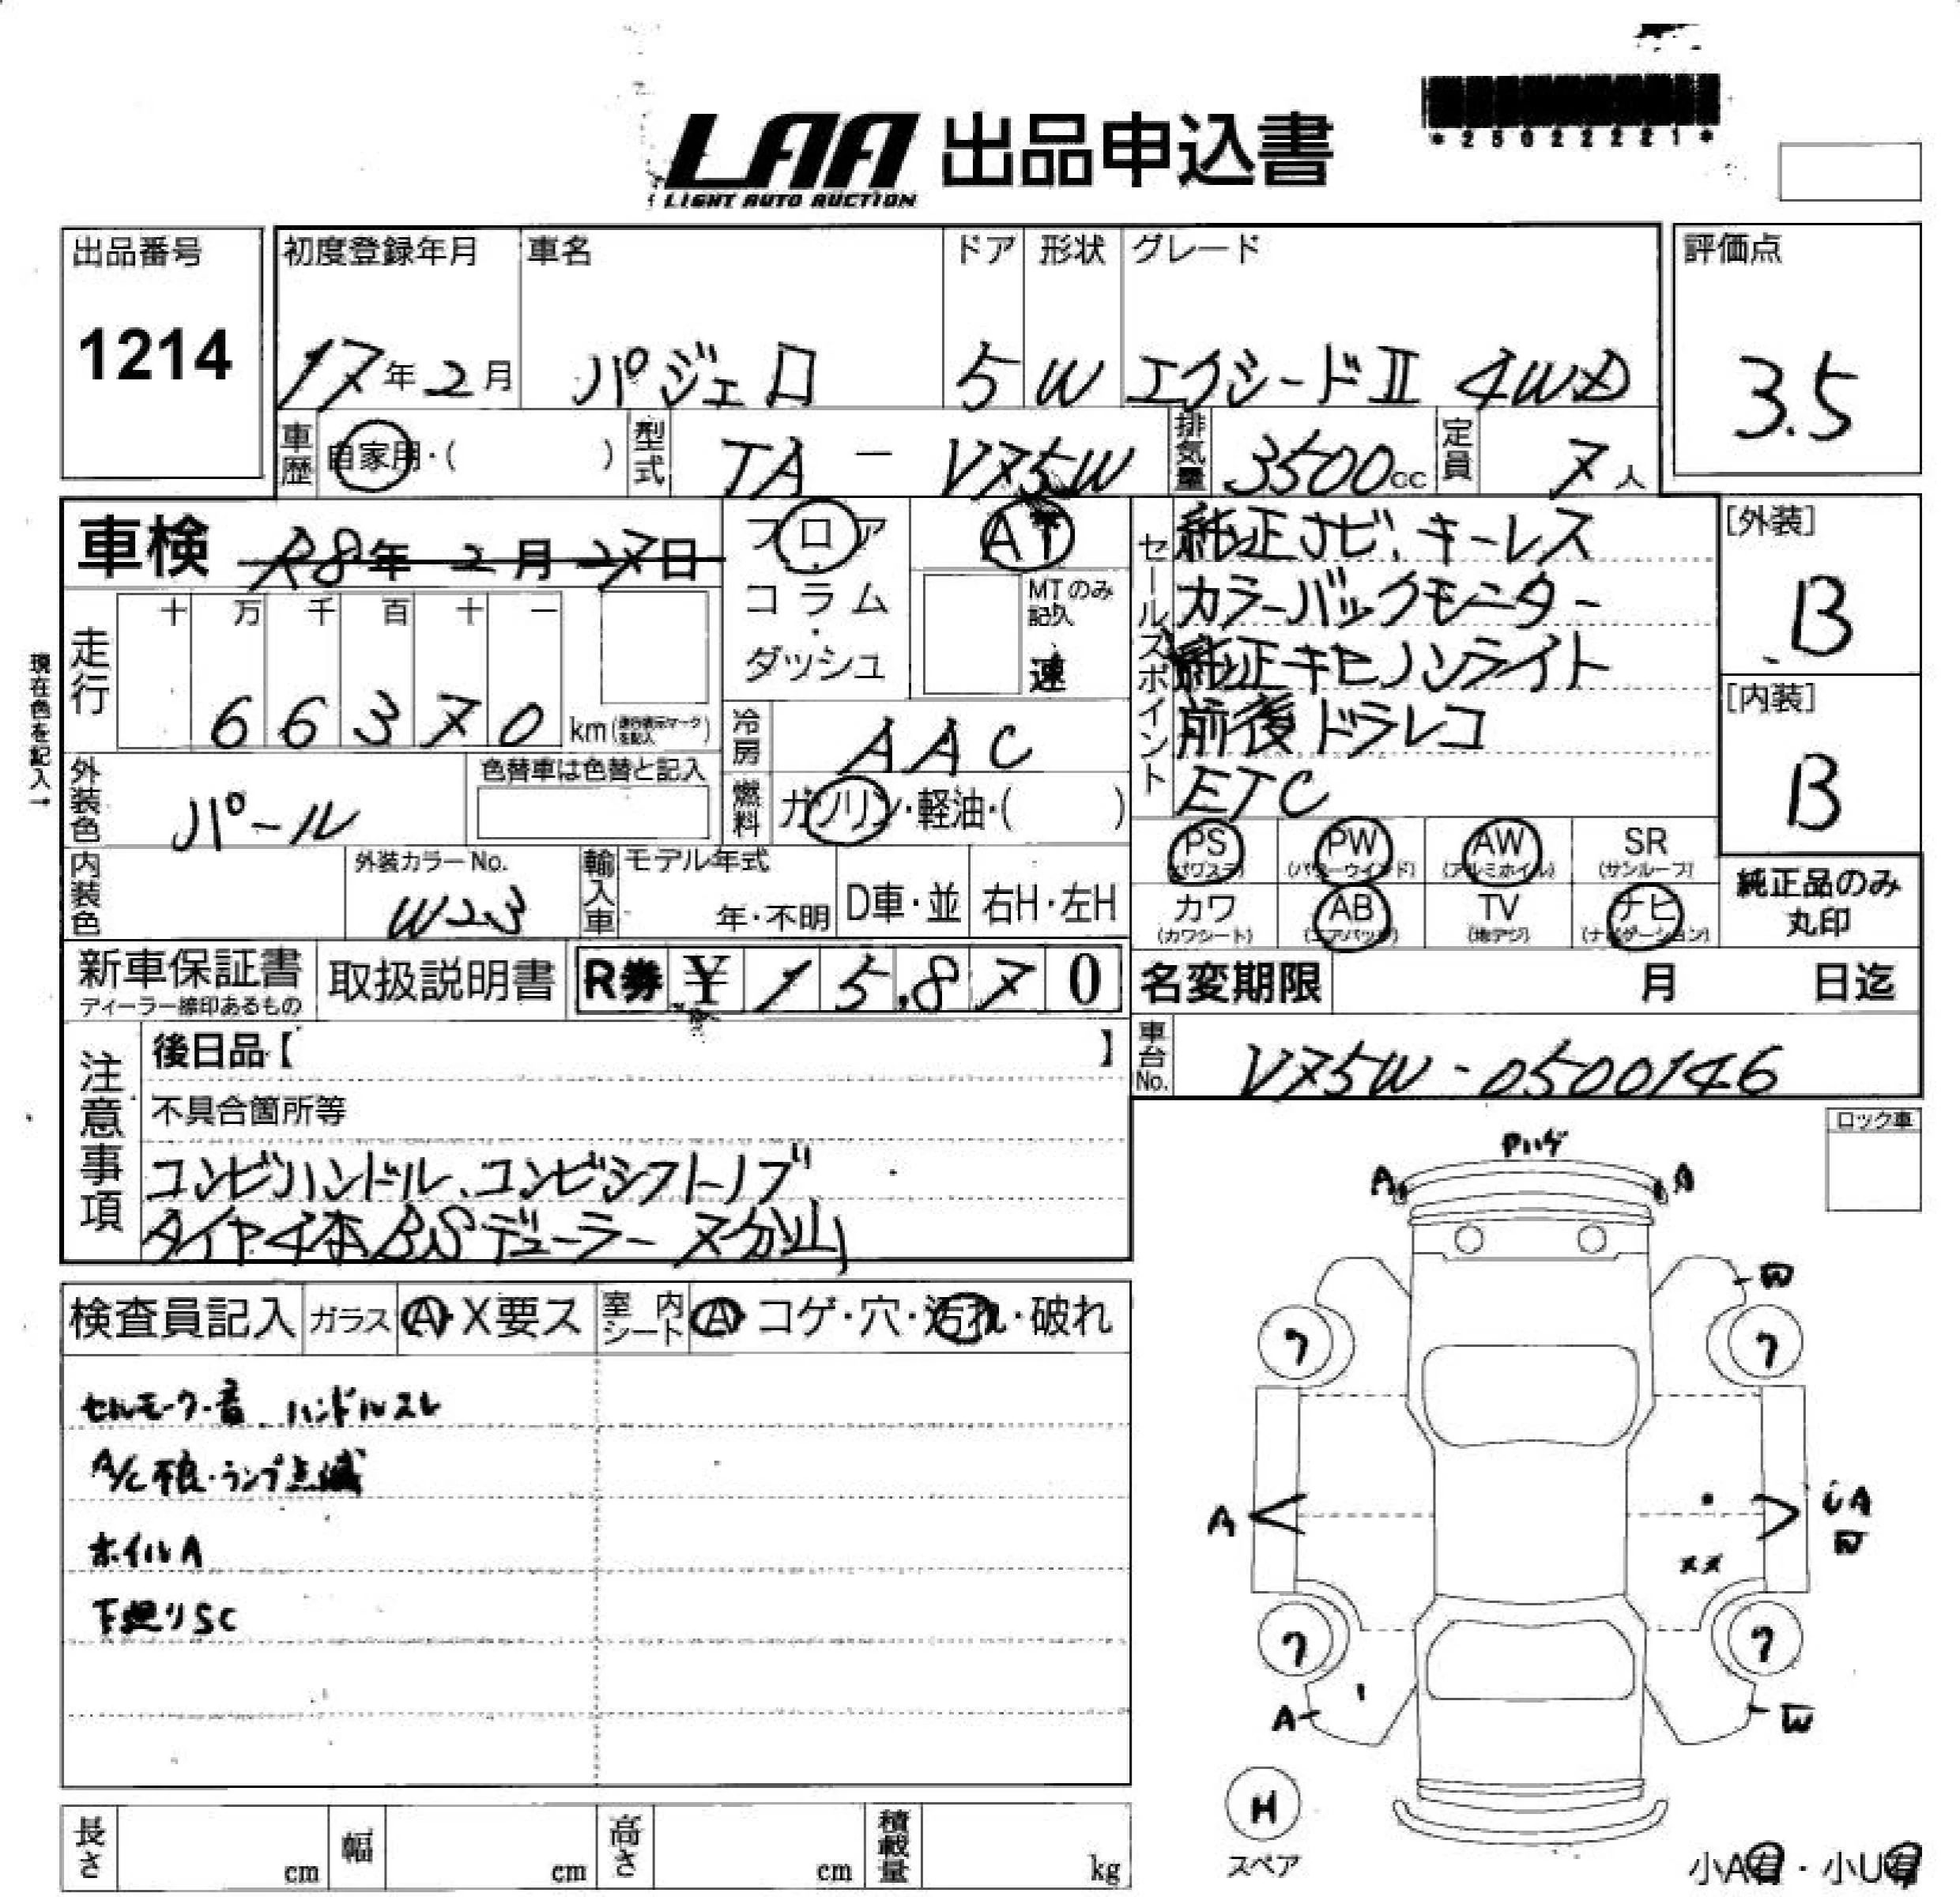 *25022221*
LAA 出品申込書
LIGHT AUTO AUCTION
出品番号 初度登録年月 車名 ドア 形状 グレード 評価点
1214 17年2月 パジェロ 5 W エクシードⅡ 4WD 3.5
車歴 自家用・( ) 型式 TA - V75W 排気量 3500cc 定員 7人
車検 R8年 2月 27日 フロア AT
・コラム・ MTのみ記入
ダッシュ 速
セールスポイント
純正ナビ、キーレス
カラーバックモニター
純正キセノンライト
前後ドラレコ
ETC
[外装]
B
[内装]
B
現在色を記入→
走行 十 万 千 百 十 一
6 6 3 7 0 km(走行表示マークを記入)
冷房 AAC
外装色 パール 色替車は色替と記入 燃料 ガソリン・軽油・( )
PS PW AW SR
(パワステ) (パワーウインド) (アルミホイル) (サンルーフ)
カワ AB TV ナビ
(カワシート) (エアバッグ) (地デジ) (ナビゲーション)
純正品のみ
丸印
内装色 外装カラーNo. W23 輸入車 モデル年式 年・不明 D車・並 右H・左H
新車保証書 取扱説明書 R券 ¥ 15,870 名変期限 月 日迄
ディーラー締印あるもの
車台No. V75W-0500146
注意事項
後日品【 】
不具合箇所等
コンビハンドル、コンビシフトノブ
タイヤ4本BSデューラー 7分山
ロック車
検査員記入 ガラス A・X要ス 室内シート A・コゲ・穴・汚れ・破れ
セルモーター音 ハンドルスレ
A/C不良・ランプ点滅
ホイルA
下廻りSC
Pハゲ
A A
W
7 7
A UA
W
XX
7 7
A W
H
スペア
小A有・小U有
長さ cm 幅 cm 高さ cm 積載量 kg